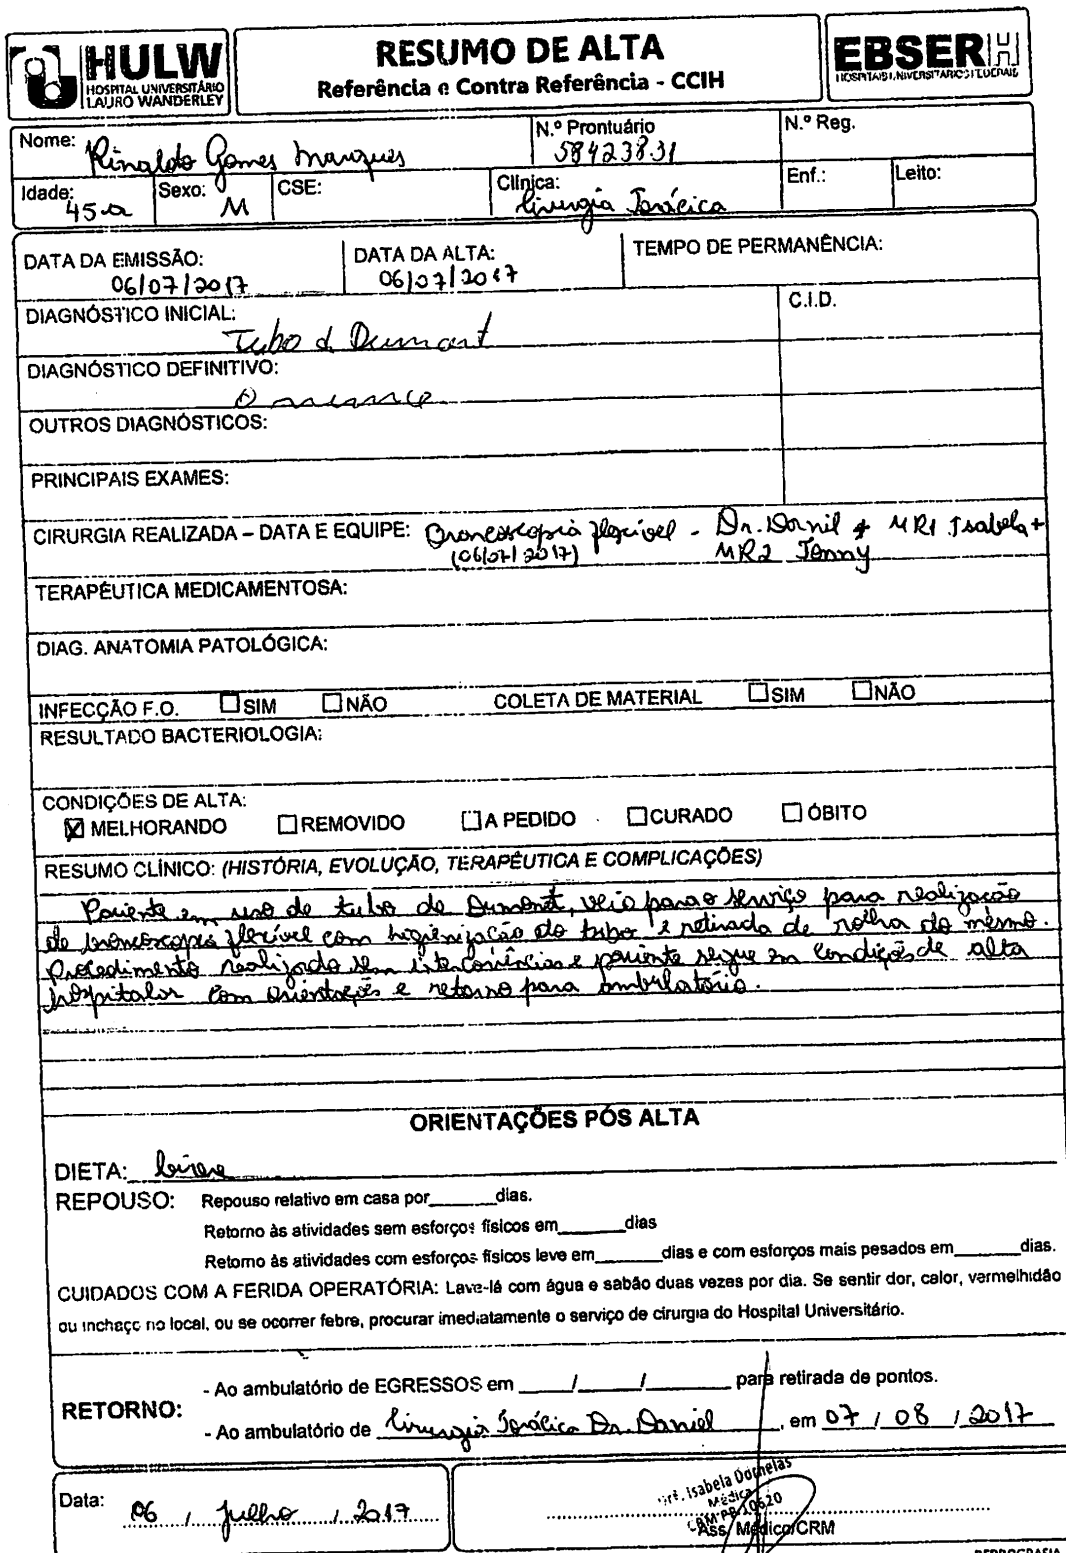 HULW
HOSPITAL UNIVERSITÁRIO
LAURO WANDERLEY
RESUMO DE ALTA
Referência e Contra Referência - CCIH
EBSERH
HOSPITAIS UNIVERSITÁRIOS FEDERAIS
Nome: Rinaldo Gomes Marques
N.º Prontuário 5842383.1
N.º Reg.
Idade: 45 a
Sexo: M
CSE:
Clínica: Cirurgia Torácica
Enf.:
Leito:
DATA DA EMISSÃO: 06/07/2017
DATA DA ALTA: 06/07/2017
TEMPO DE PERMANÊNCIA:
DIAGNÓSTICO INICIAL: Tubo d Dumont
C.I.D.
DIAGNÓSTICO DEFINITIVO: O mesmo
OUTROS DIAGNÓSTICOS:
PRINCIPAIS EXAMES:
CIRURGIA REALIZADA – DATA E EQUIPE: Broncoscopia flexível - Dr. Daniel + MR1 Isabela +
(06/07/2017) MR2 Jenny
TERAPÊUTICA MEDICAMENTOSA:
DIAG. ANATOMIA PATOLÓGICA:
INFECÇÃO F.O. ☐ SIM ☐ NÃO COLETA DE MATERIAL ☐ SIM ☐ NÃO
RESULTADO BACTERIOLOGIA:
CONDIÇÕES DE ALTA:
☒ MELHORANDO ☐ REMOVIDO ☐ A PEDIDO ☐ CURADO ☐ ÓBITO
RESUMO CLÍNICO: (HISTÓRIA, EVOLUÇÃO, TERAPÊUTICA E COMPLICAÇÕES)
Paciente em uso de tubo de Dumont, veio para o serviço para realização
de broncoscopia flexível com higienização do tubo e retirada de rolha do mesmo.
Procedimento realizado sem intercorrências e paciente segue em condições de alta
hospitalar com orientações e retorno para ambulatório.
ORIENTAÇÕES PÓS ALTA
DIETA: livre
REPOUSO: Repouso relativo em casa por______dias.
Retorno às atividades sem esforços físicos em______dias
Retorno às atividades com esforços físicos leve em______dias e com esforços mais pesados em______dias.
CUIDADOS COM A FERIDA OPERATÓRIA: Lave-lá com água e sabão duas vezes por dia. Se sentir dor, calor, vermelhidão
ou inchaço no local, ou se ocorrer febre, procurar imediatamente o serviço de cirurgia do Hospital Universitário.
RETORNO:
- Ao ambulatório de EGRESSOS em ____/____/____ para retirada de pontos.
- Ao ambulatório de Cirurgia Torácica Dr. Daniel, em 07 / 08 / 2017
Data: 06 / julho / 2017
Isabela Dornelas
Médica
CRM PB 10620
Ass. Médico/CRM
REPROGRAFIA